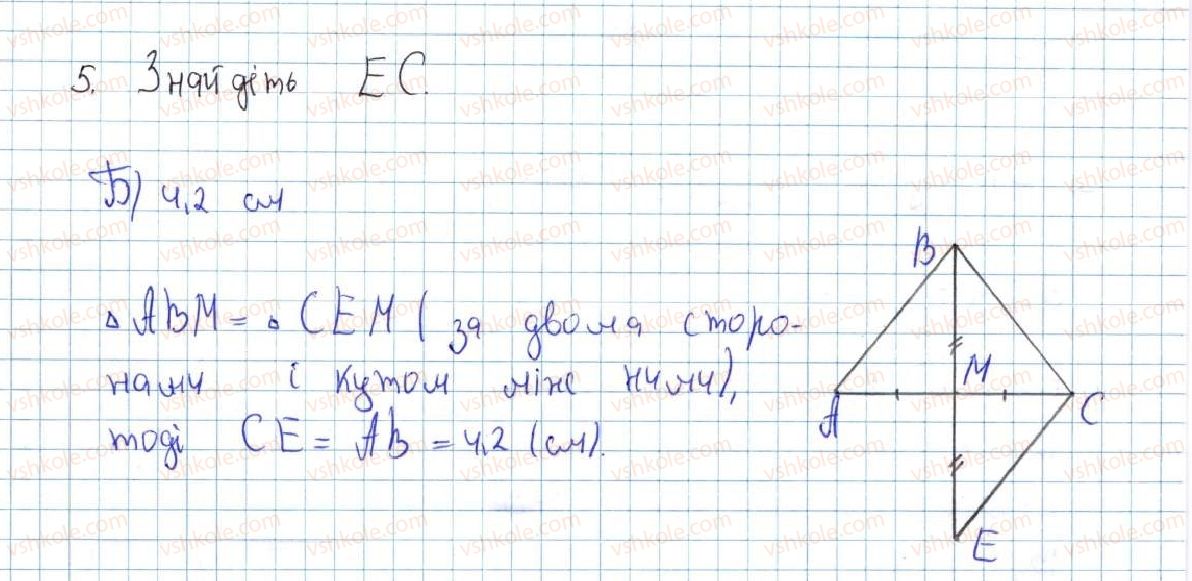 5. Знайдіть EC.
Б) 4,2 см
▵ ABM = ▵ CEM (за двома сторо-
нами і кутом між ними),
тоді CE = AB = 4,2 (см).
B
M
A
C
E